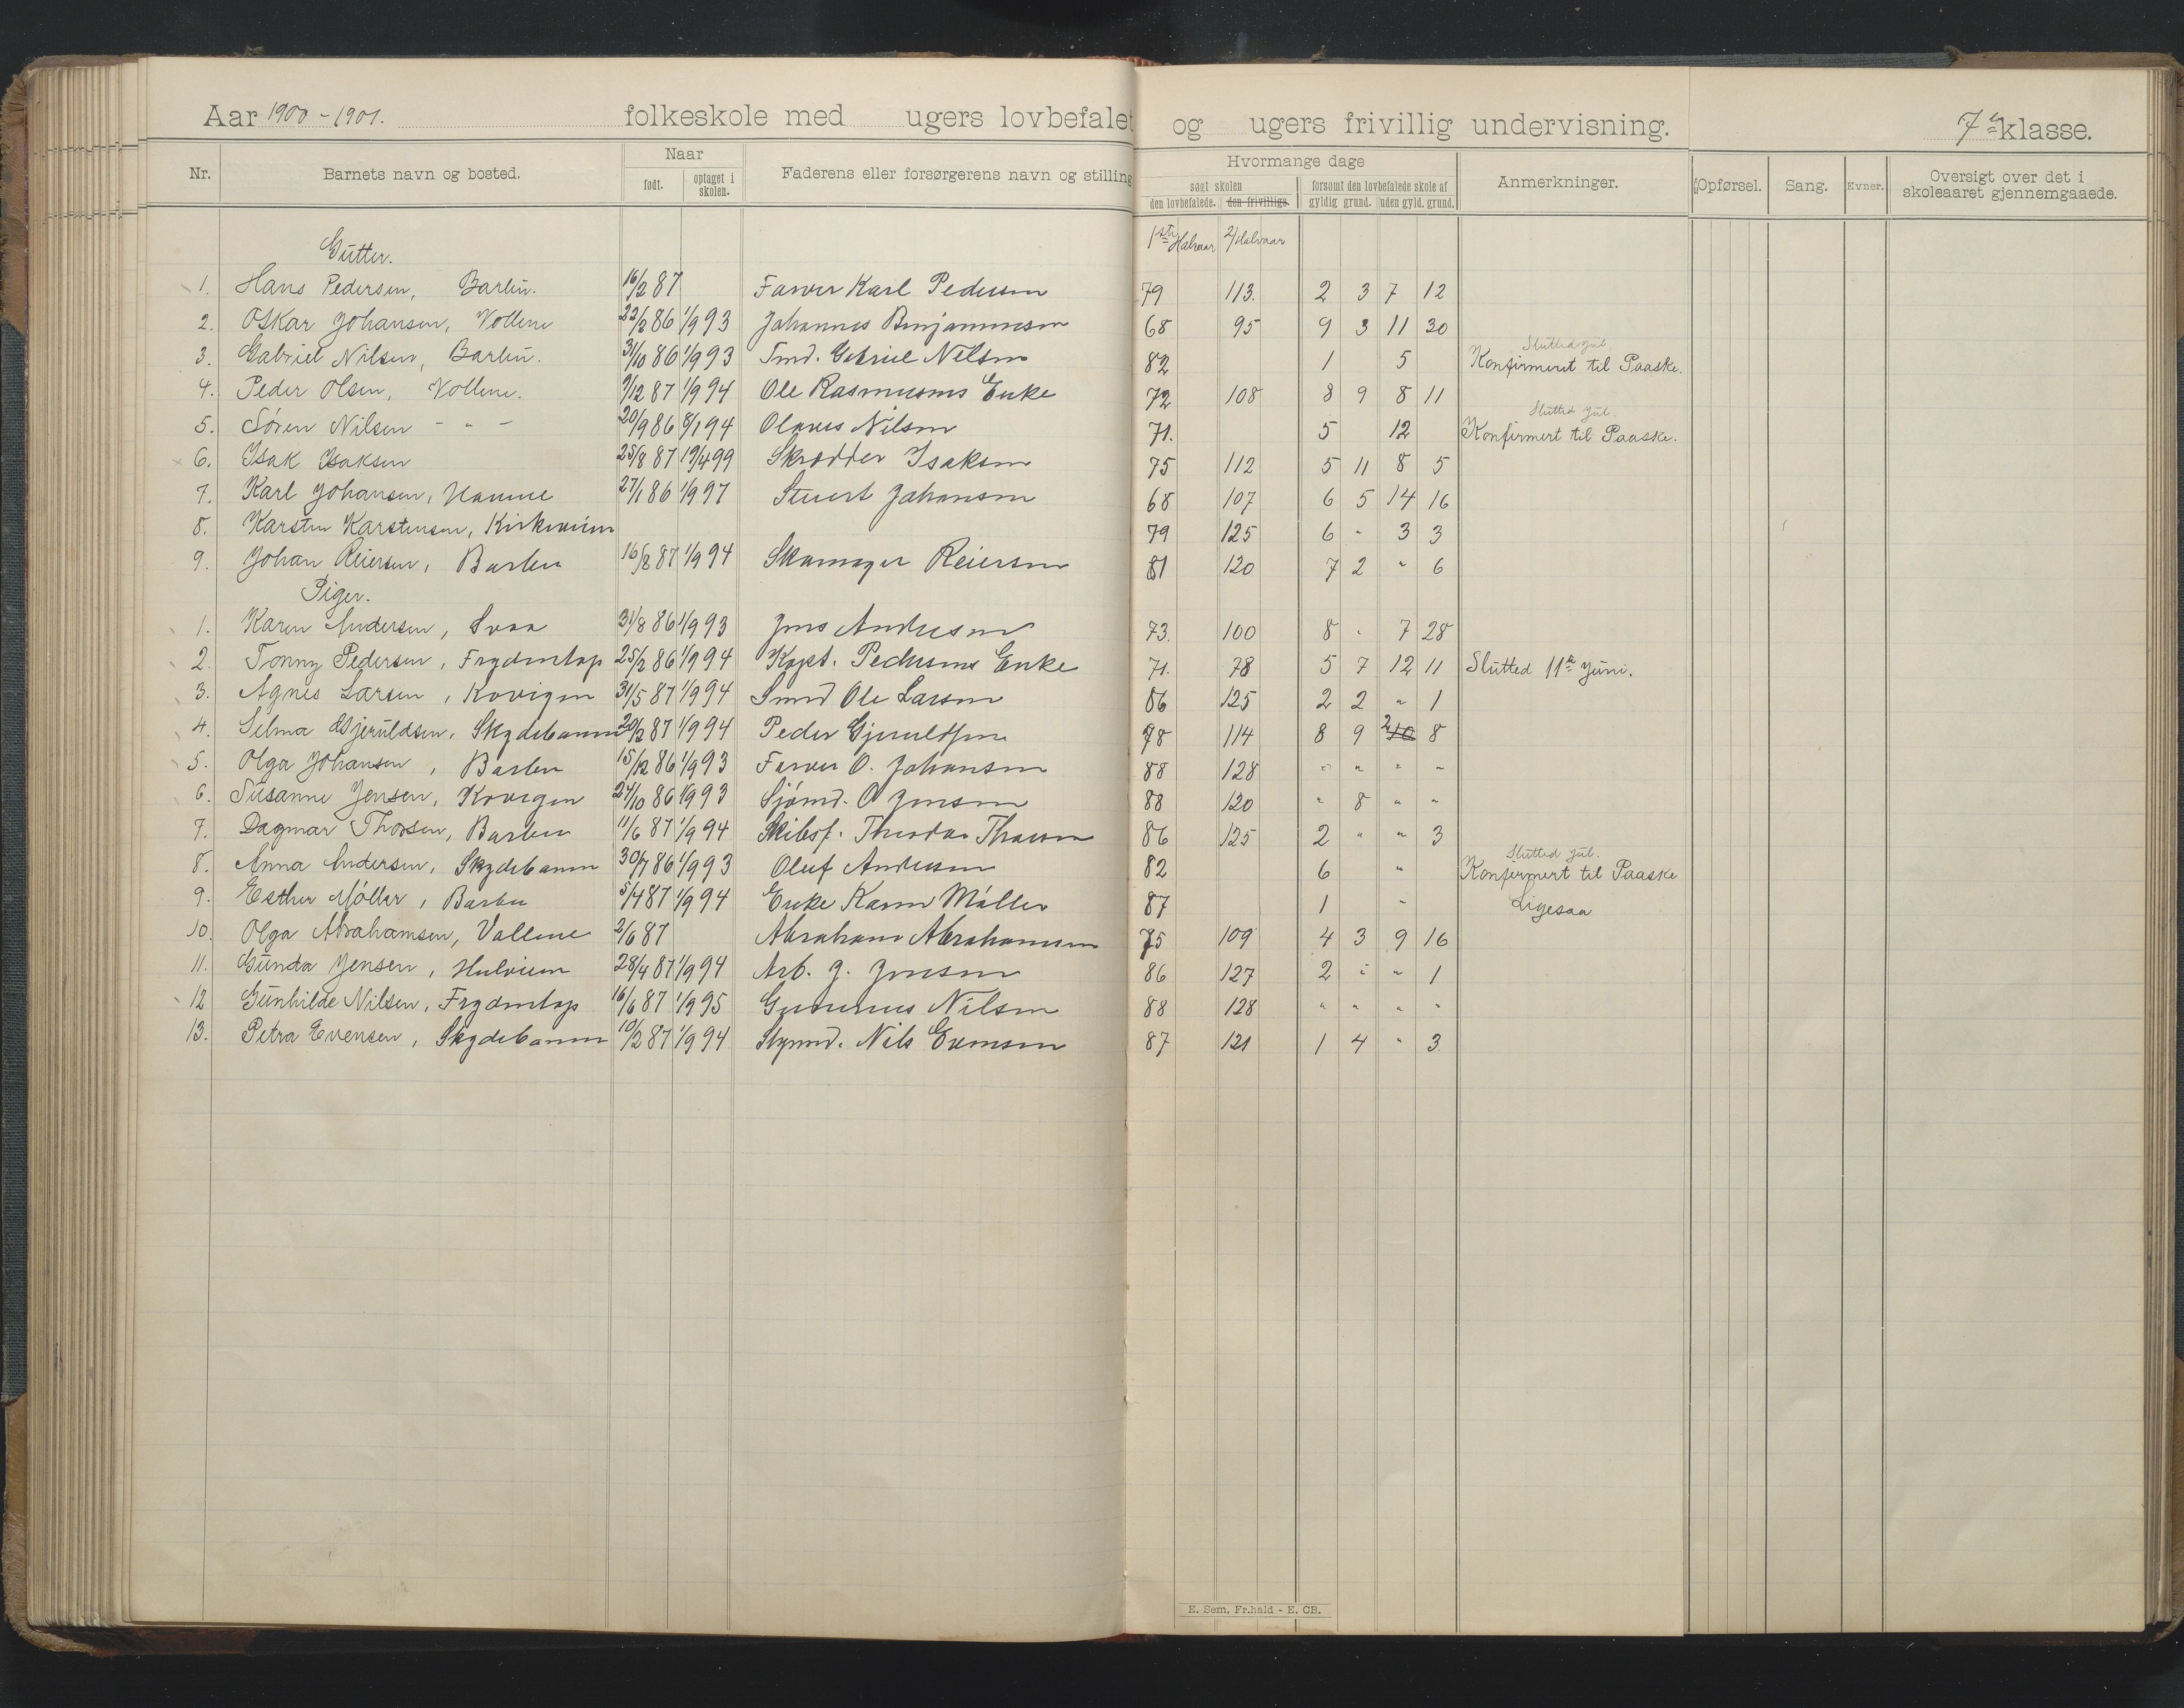 Aar 1900-1901. folkeskole med ugers lovbefalet og ugers frivillig undervisning. 7de klasse.
Nr. Barnets navn og bosted. Naar født. optaget i skolen. Faderens eller forsørgerens navn og stilling Hvormange dage søgt skolen den lovbefalede. den frivillige. forsømt den lovbefalede skole af gyldig grund. uden gyld. grund. Anmerkninger. Opførsel. Sang. Evner. Oversigt over det i skoleaaret gjennemgaaede.
Gutter. 1ste Halvaar 2/Halvaar
1. Hans Pedersen, Barbu. 16/2 87 Farver Karl Pedersen 79 113. 2 3 7 12
2. Oskar Johansen, Vollene 22/2 86 1/9 93 Johannes Benjaminsen 68 95 9 3 11 30
3. Gabriel Nilsen, Barbu. 31/10 86 1/9 93 Smd. Gabriel Nilsen 82 1 5 Slutted Jul. Konfirmeret til Paaske.
4. Peder Olsen, Vollene. 9/12 87 1/9 94 Ole Rasmusens Enke 72 108 8 9 8 11
5. Søren Nilsen - " - 20/9 86 8/1 94 Olaves Nilsen 71. 5 12 Slutted Jul. Konfirmert til Paaske.
6. Isak Isaksen 25/8 87 19/4 99 Skrædder Isaksen 75 112 5 11 8 5
7. Karl Johansen, 27/1 86 1/9 97 Stuert Johansen 68 107 6 5 14 16
8. Karsten Karstensen, 79 125 6 " 3 3
9. Johan Reiersen, Barbu 16/8 87 1/9 94 Skomager Reiersen 81 120 7 2 " 6
Piger.
1. Karen Andersen, 31/8 86 1/9 93 Jens Andersen 73. 100 8 " 7 28
2. Tonny Pedersen, Frydentop 25/2 86 1/9 94 Kapt. Pedersens Enke 71. 78 5 7 12 11 Sluttet 11te Juni.
3. Agnes Larsen, Kovigen 31/5 87 1/9 94 Smed Ole Larsen 86 125 2 2 " 1
4. Selma Gjeruldsen, Skydebanen 20/2 87 1/9 94 Peder Gjeruldsen 78 114 8 9 2 10 8
5. Olga Johansen, Barbu 15/12 86 1/9 93 Farver O. Johansen 88 128 " " " "
6. Susanne Jensen, Kovigen 24/10 86 1/9 93 Sjømd. O Jensen 88 120 " 8 " "
7. Dagmar Thorsen, Barbu 11/6 87 1/9 94 Skibsf. Theodor Thorsen 86 125 2 " " 3
8. Anna Andersen, Skydebanen 30/7 86 1/9 93 Oluf Andersen 82 6 " Slutted Jul. Konfirmert til Paaske
9. Esther Møller, Barbu 5/4 87 1/9 94 Enke Karen Møller 87 1 " Ligesaa
10. Olga Abrahamsen, Vollene 2/6 87 Abraham Abrahamsen 75 109 4 3 9 16
11. Gunda Jensen, 28/4 87 1/9 94 Arb. J. Jensen 86 127 2 " " 1
12 Gunhilde Nilsen, Frydentop 16/6 87 1/9 95 Nilsen 88 128 " " " "
13. Petra Evensen, Skydebanen 10/2 87 1/9 94 Nils Evensen 87 121 1 4 " 3
E. Sem, Fr.hald - E. CB.